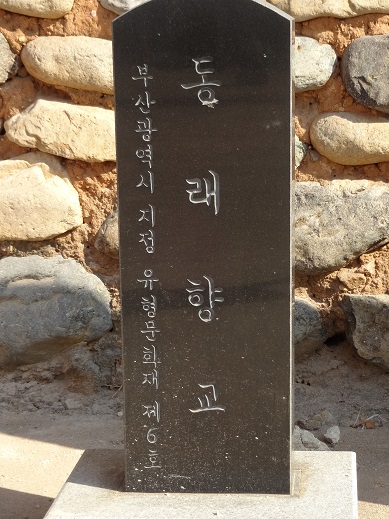 동래향교
부산광역시 지정 유형문화재 제6호